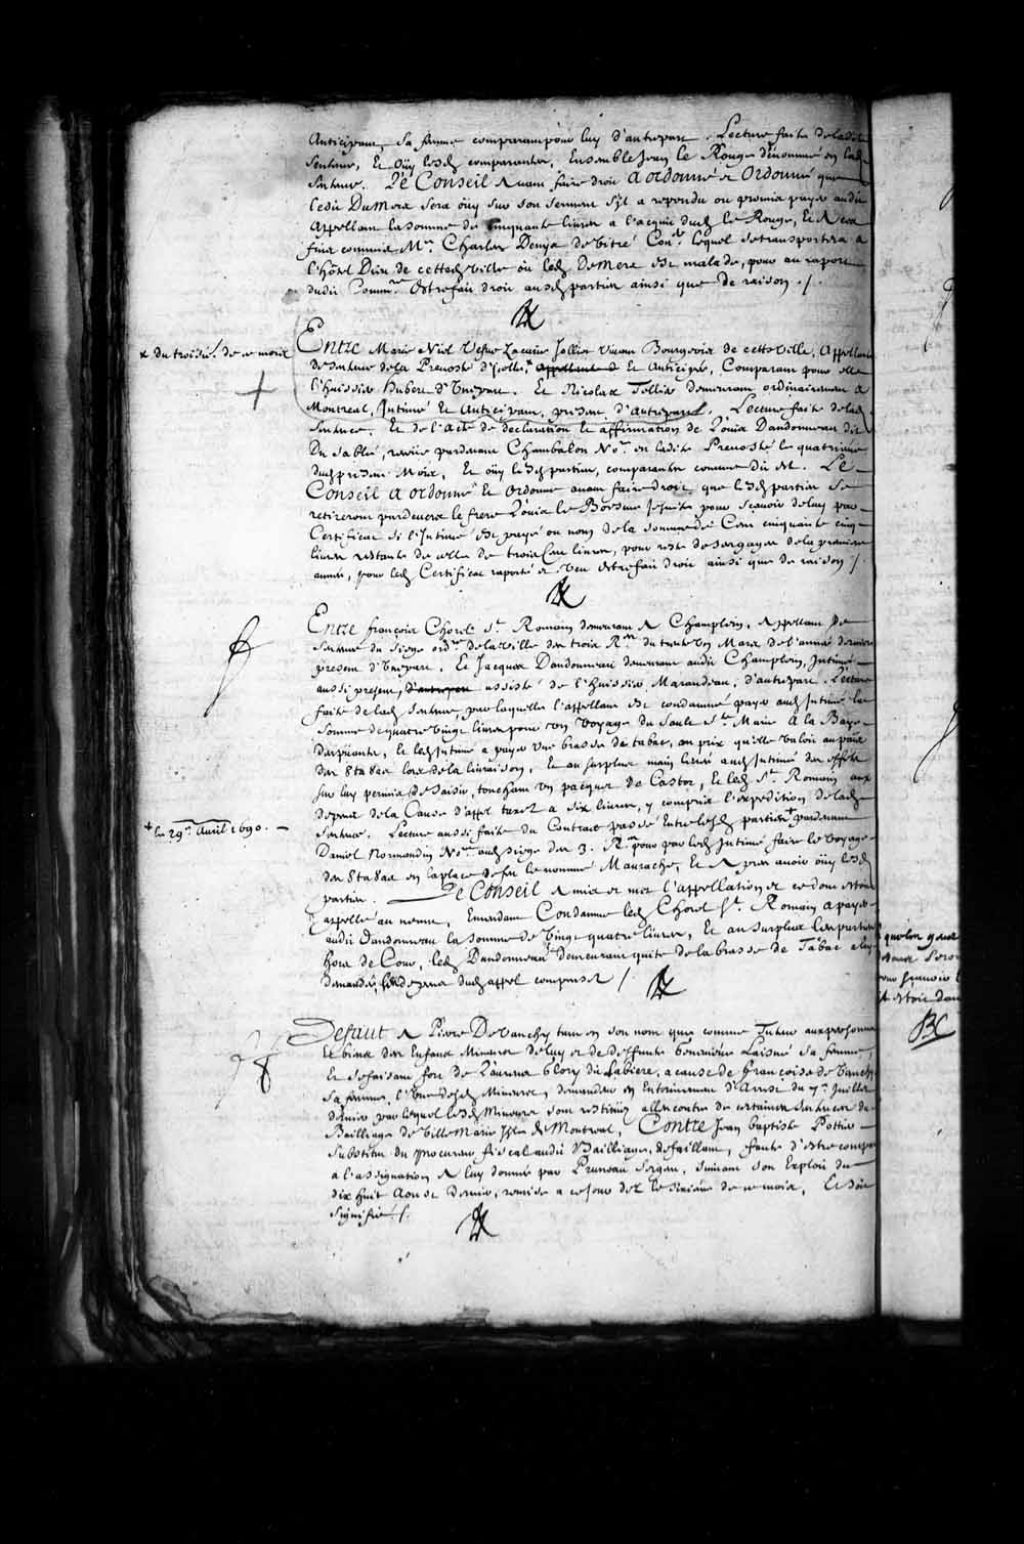 Anticipant, Sa femme comparant pour luy d'autrepart. Lecture faite de ladite
Sentence, Et Oüy lesd comparantes, Ensemble Jean le Rouge denommé en lad
Sentence. Le Conseil Avant faire droit A ordonné et Ordonne que
ledit DuMere sera oüy sur son serment s'il a repondu ou promis payer audit
Appellant la somme de cinquante livres a l'acquit dud le Rouge, Et A cette
fin commis Mre Charles Denys de Vitré Conr lequel se transportera a
l'hôtel Dieu de cetted ville où led DeMere est malade, pour au raport
dudit Commre Estre fait droit ausd parties ainsi que de raison ./.
Entre Marie Niel Vefve Zacarie Jolliet Vivant Bourgeois de cette Ville, Appellante
de Sentence de la Prevosté d'Icelle + Et Anticipée, Comparant pour elle
l'huissier Hubert d'Unepart. Et Nicolas Tellier demeurant ordinairement a
Montreal, Intimé Et Anticipant, present d'autrepart. Lecture faite de lad
Sentence, Et de l'acte de declaration Et affirmation de Loüis Dandonneau dit
Du Sablé, receüe pardevant Chambalon Nore en ladite Prevosté le quatriéme
dud present Mois, Et oüy lesd parties, comparantes comme dit est. Le
Conseil a ordonné Et Ordonne avant faire droit, que lesd parties se
retireront pardevers le frere Loüis le Boesme Jesuite pour sçavoir de luy par
Certificat si l'Intimé Est payé ou non de la somme de Cent cinquante cinq
livres restante de celle de trois Cent livres, pour reste de ses gages de la premiere
année, pour led Certificat raporté et veu estre fait droit ainsi que de raison /.
+ du troisie. de ce mois
Entre françois Chorel St Romain demeurant A Champlein, Appellant de
Sentence du Siege ordre de la Ville des trois Res du trente un Mars de l'année derniere
present d'Unepart. Et Jacques Dandonneau demeurant audit Champlein, Intimé
aussi present, assisté de l'huissier Marandeau, d'autrepart. Lecture
faite de lad Sentence, par laquelle l'appellant est condamné payer aud Intimé la
somme de quatre Vingt livres pour un Voyage du Saule Ste Marie A la Baye
des püants, Et led Intimé a payer une brasse de tabac, au prix qu'elle valoit au païs
des 8ta8ax lors de la livraison, Et au surplus main levée aud Intimé des effets
sur luy permis de saisir, touchant un pacquet de Castor, Et led Sr. Romain aux
depens de la Cause d'appel taxez a six livres, y compris l'expedition de lad
Sentence. Lecture aussi faite du Contract passé Entre lesd parties + pardevant
Daniel Normandin Nore aud siege des 3. Res pour par led Intimé faire le Voyage
des 8ta8ax en la place de feu le nommé Maurache, Et Apres avoir oüy lesd
parties. Le Conseil A mis et met l'appellation et ce dont estoit
appellé au neant, Emendant Condamne led Chorel St. Romain a payer
audit Dandonneau la somme de Vingt quatre livres, Et au surplus les parties
hors de Cour, led Dandonneau demeurant quite de la brasse de Tabac a luy
demandée, depens dud appel compensez /
+ le 29e. Avril 1690.
Defaut A Pierre DeVanchy tant en son nom que comme Tuteur aux personnes
Et biens des Enfans Mineurs de luy et de deffunte Laisné sa femme,
Et se faisant fort de Laurens Glory dit Labiere, a cause de Françoise de Vanchy
sa femme, l'Une desd Mineures, demandeur en Enterinement d'Arrest du 7e. Juillet
dernier par lequel lesd Mineures sont restitüez allencontre de certaines Sentences du
Bailliage de Ville Marie Isle de Montreal, Contre Jean baptiste Pottier
Substitut du procureur fiscal audit Bailliage, defaillant, faute d'estre comparu
a l'assignation A luy donnée par Pruneau Sergent, suivant son Exploit du
dix huit Aoust Dernier, remise a ce jour dez le sixiéme de ce mois, Et soit
Signifié /.